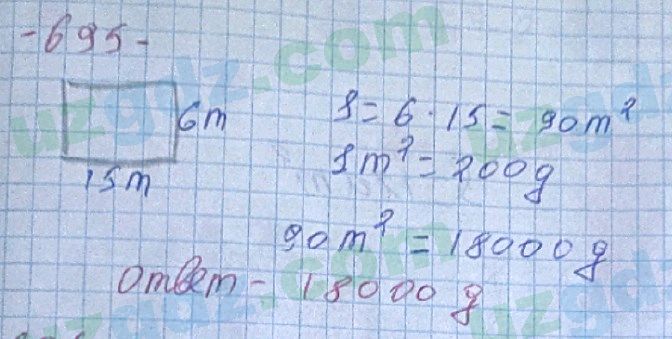 -695-
6m
S = 6 · 15 = 90m²
15m
1m² = 200g
90m² = 18000g
Ответ - 18000 g
uzgdz.com